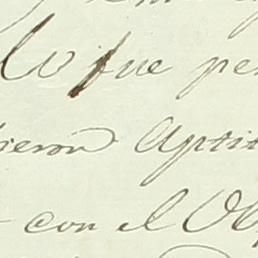 lo fue pe
ieron Aptit
con el Ob